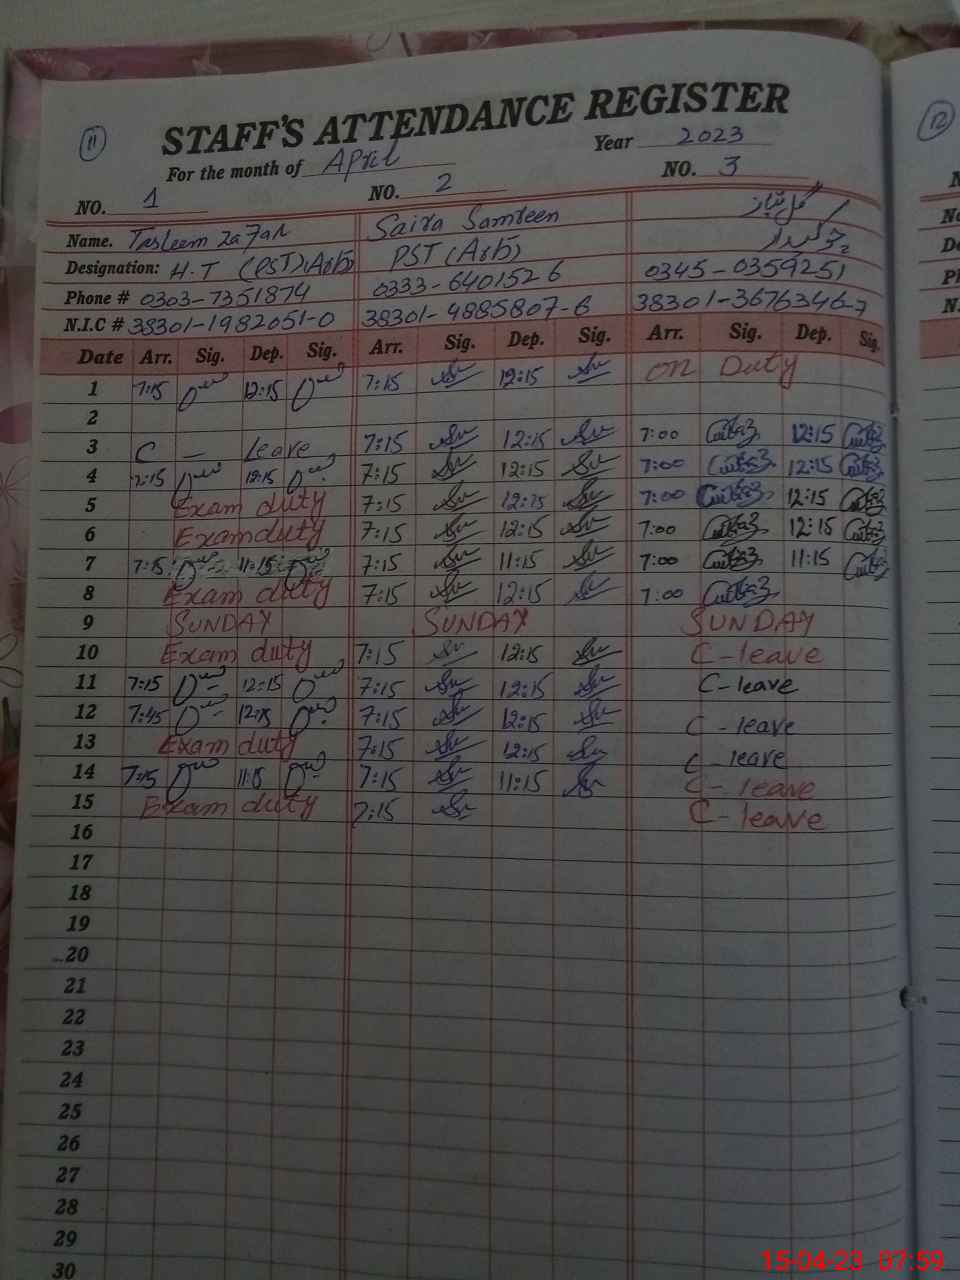 11
12
STAFF'S ATTENDANCE REGISTER
For the month of April Year 2023
NO. 1 NO. 2 NO. 3
Name. Tasleem Zafar Saira Samreen
Designation: H.T (PST)(Arb) PST (Arb) چوکیدار
Phone # 0303-7351874 0333-6401526 0345-0359251
N.I.C # 38301-1982051-0 38301-4885807-6 38301-3676346-7
Date Arr. Sig. Dep. Sig. Arr. Sig. Dep. Sig. Arr. Sig. Dep. Sig.
1 7:15 12:15 7:15 12:15 on Duty
2
3 C - leave 7:15 12:15 7:00 12:15
4 12:15 7:15 12:15 7:00 12:15
5 Exam duty 7:15 12:15 7:00 12:15
6 Exam duty 7:15 12:15 7:00 12:15
7 7:15 11:15 7:15 11:15 7:00 11:15
8 Exam duty 7:15 12:15 7:00
9 SUNDAY SUNDAY SUNDAY
10 Exam duty 7:15 12:15 C-leave
11 7:15 12:15 7:15 12:15 C-leave
12 7:45 12:15 7:15 12:15 C-leave
13 Exam duty 7:15 12:15 C leave
14 7:15 11:15 7:15 11:15 C-leave
15 Exam duty 7:15 C-leave
16
17
18
19
20
21
22
23
24
25
26
27
28
29
30
15-04-23 07:59